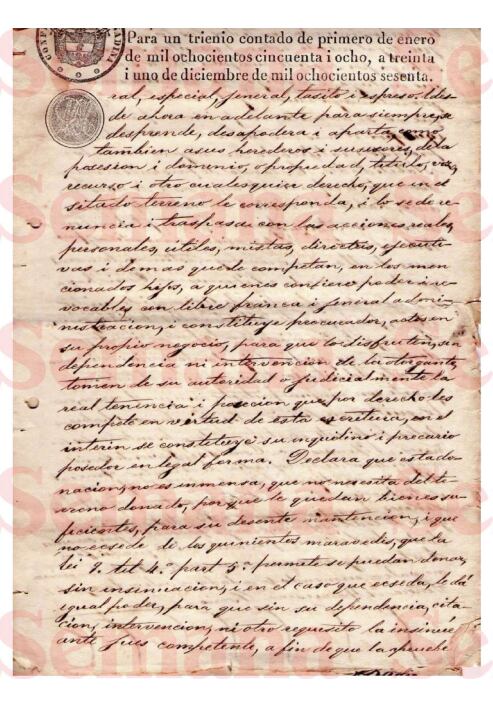 Para un trienio contado de primero de enero
de mil ochocientos cincuenta i ocho, a treinta
i uno de diciembre de mil ochocientos sesenta.
ral, especial, jeneral, tasito i espreso. I des-
de ahora en adelante para siempre, se
desprende, desapodera i aparta, como
tambien a sus herederos i susesores, de la
posesion i dominio, o propiedad, titulo, voz,
recurso i otro cualesquier derecho, que en el
sitado terreno le corresponda, i lo sede re-
nuncia i traspasa con las acciones reales,
personales, útiles, mistas, directas, ejecuti-
vas i demas que le competan, en los men-
cionados hijos, a quienes confiere poder irre-
vocable, con libre franca i jeneral admi-
nistracion, i constituye procurador, actor en
su propio negocio, para que lo disfruten, sin
dependencia ni intervencion de la otorgante,
tomen de su autoridad o judicialmente la
real tenencia i posecion que por derecho les
compete en virtud de esta escritura, en el
interin se constituye su inquilino i precario
poseedor en legal forma. Declara que esta do-
nacion, no es inmensa, que no necesita del te-
rreno donado, porque le quedan bienes su-
ficientes, para su desente manutencion, i que
no ecsede de los quinientos maravedis, que la
lei 9. tit 4.º part 5.ª permite se puedan donar,
sin insinuacion, i en el caso que ecseda, le dá
igual poder, para que sin su dependencia, cita-
cion, intervencion, ni otro requisito la insinúe
ante jues competente, a fin de que la apruebe
Semana Se
Semana Se
Semana Se
Semana Se
Semana Se